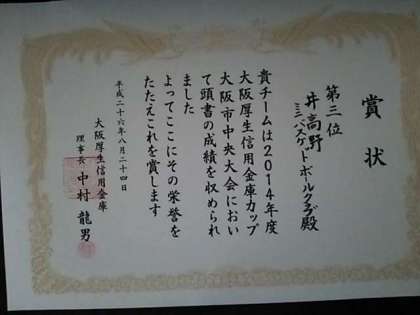 賞状
第三位
井高野
ミニバスケットボールクラブ殿
貴チームは2014年度
大阪厚生信用金庫カップ
大阪市中央大会におい
て頭書の成績を収められ
ました
よってここにその栄誉を
たたえこれを賞します
平成二十六年八月二十四日
大阪厚生信用金庫
理事長 中村龍男